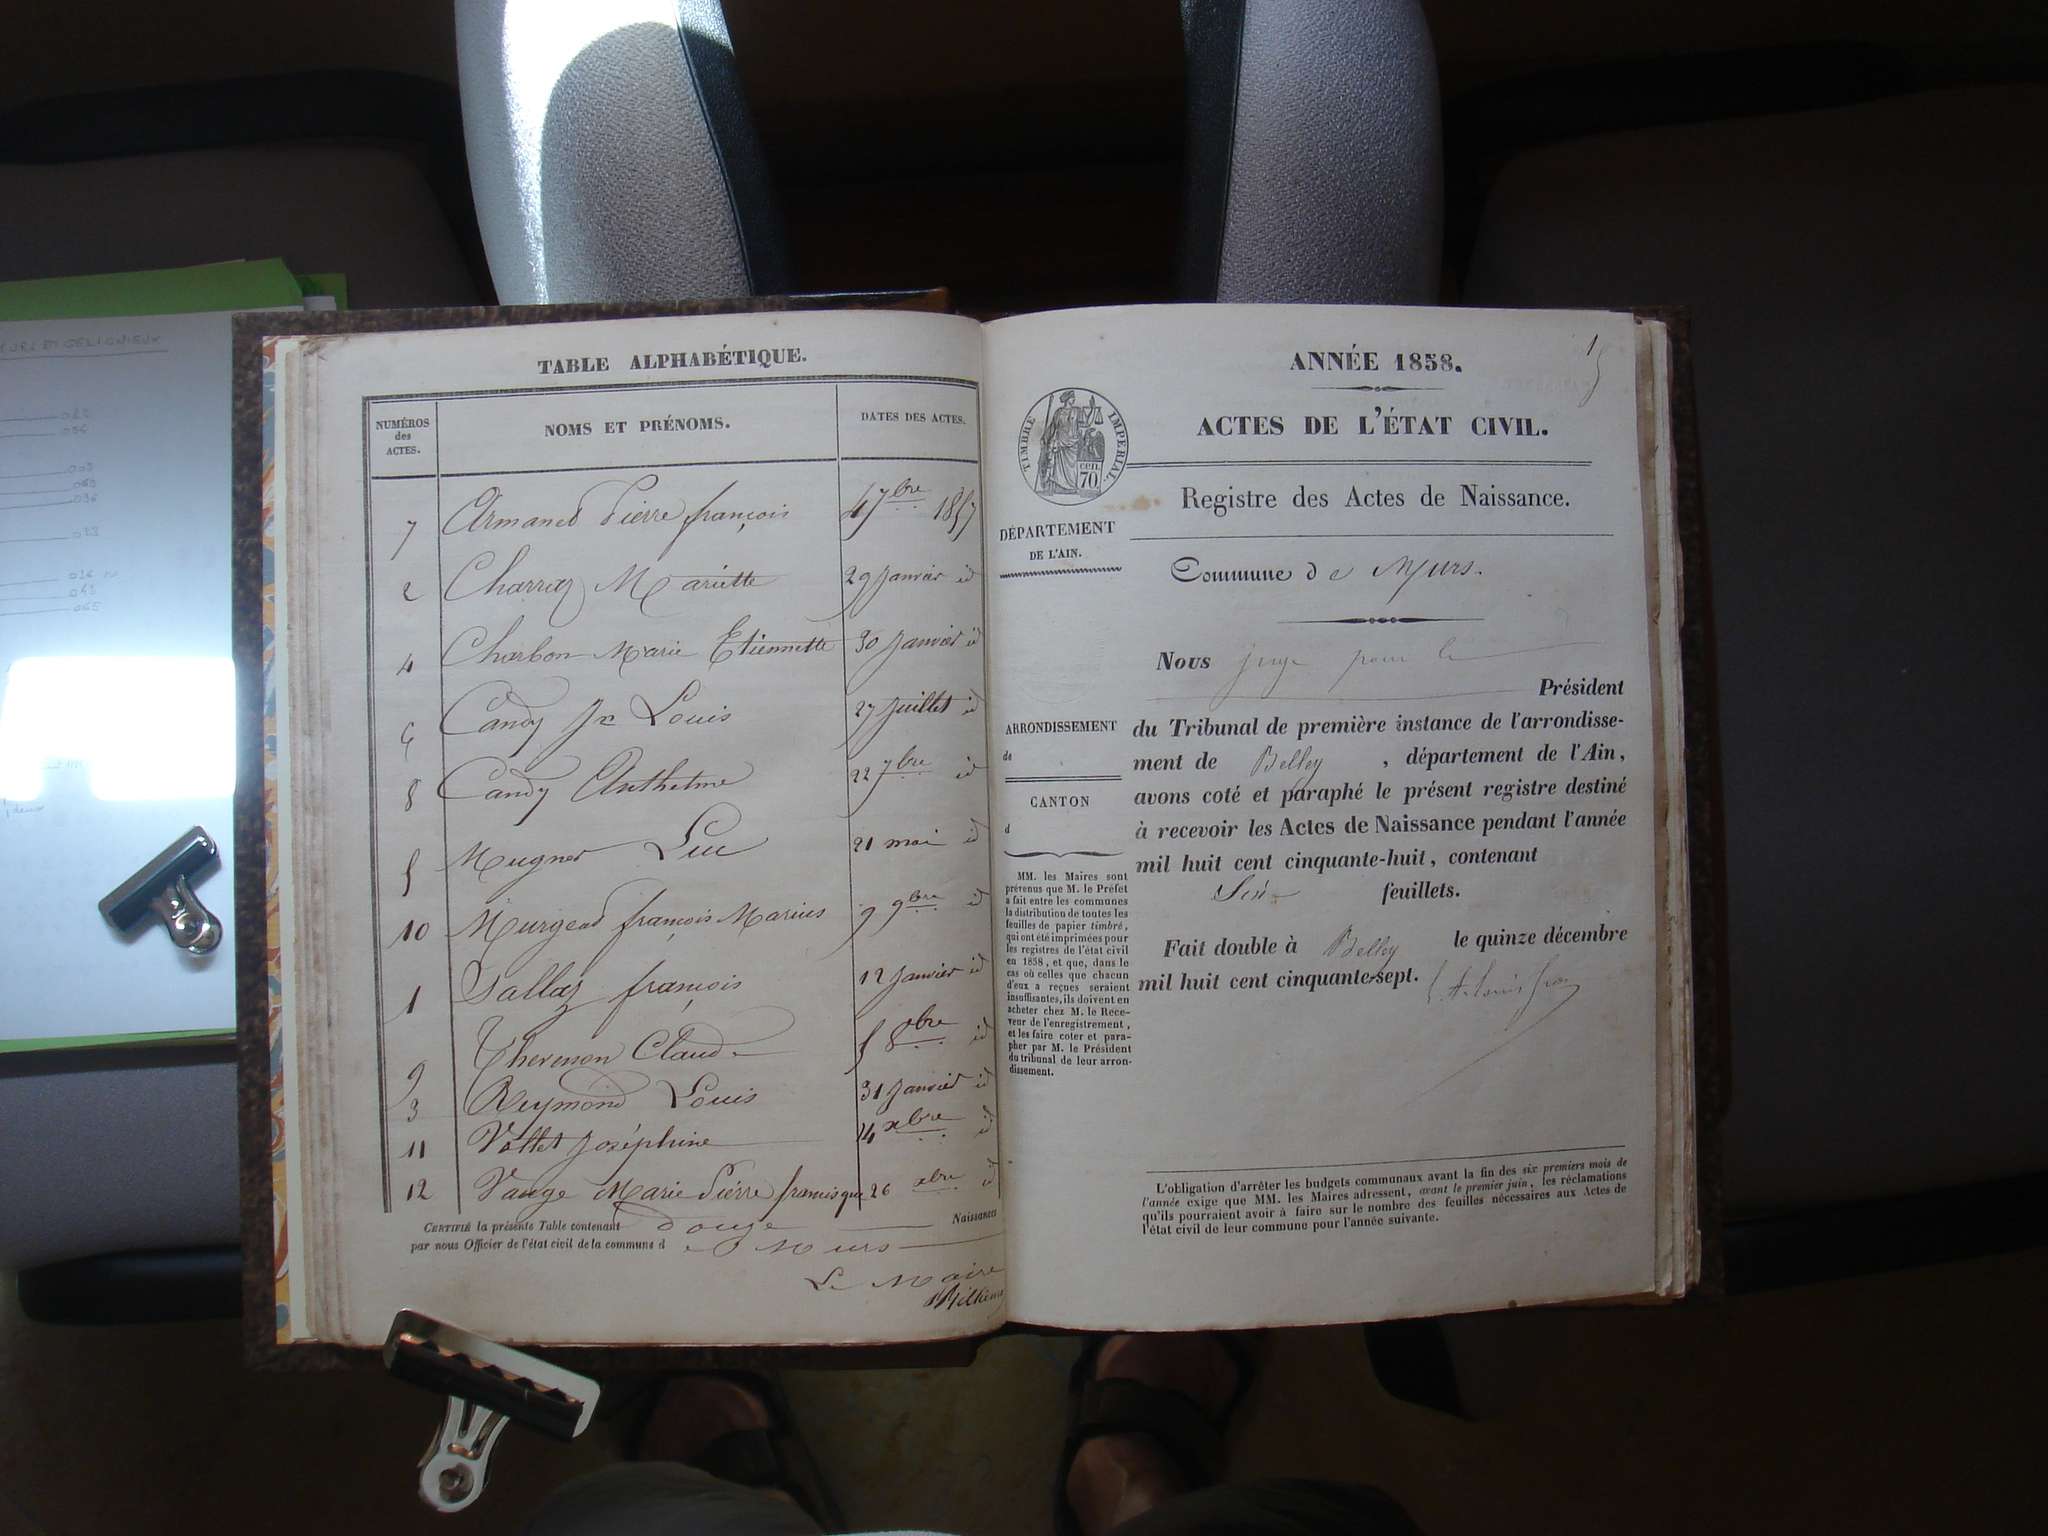 TABLE ALPHABÉTIQUE.
NUMÉROS
des
ACTES.
NOMS ET PRÉNOMS.
DATES DES ACTES.
7 Armand Pierre françois 4 7bre 1857
2 Charraz Mariette 29 Janvier id
4 Charbon Marie Etiennette 30 Janvier id
6 Candy Louis 27 Juillet id
8 Candy Anthelme 22 7bre id
5 Mugner Luc 21 mai id
10 Murgead françois Marius 9 9bre id
1 Sallaz françois 12 Janvier id
9 Thevenon Claude 5 8bre id
3 Reymond Louis 31 Janvier id
11 Vollet Joséphine 14 xbre id
12 Vauge Marie Pierre francisque 26 xbre id
CERTIFIÉ la présente Table contenant douze Naissances
par nous Officier de l'état civil de la commune de Murs
Le Maire
ANNÉE 1858.
ACTES DE L'ÉTAT CIVIL.
TIMBRE IMPÉRIAL.
cen.
70
Registre des Actes de Naissance.
DÉPARTEMENT
DE L'AIN.
Commune de Murs.
Nous juge pour le
Président
ARRONDISSEMENT
de
CANTON
d
du Tribunal de première instance de l'arrondisse-
ment de Belley , département de l'Ain,
avons coté et paraphé le présent registre destiné
à recevoir les Actes de Naissance pendant l'année
mil huit cent cinquante-huit, contenant
Six feuillets.
Fait double à Belley le quinze décembre
mil huit cent cinquante-sept.
MM. les Maires sont
prévenus que M. le Préfet
a fait entre les communes
la distribution de toutes les
feuilles de papier timbré,
qui ont été imprimées pour
les registres de l'état civil
en 1858, et que, dans le
cas où celles que chacun
d'eux a reçues seraient
insuffisantes, ils doivent en
acheter chez M. le Rece-
veur de l'enregistrement,
et les faire coter et para-
pher par M. le Président
du tribunal de leur arron-
dissement.
L'obligation d'arrêter les budgets communaux avant la fin des six premiers mois de
l'année exige que MM. les Maires adressent, avant le premier juin, les réclamations
qu'ils pourraient avoir à faire sur le nombre des feuilles nécessaires aux Actes de
l'état civil de leur commune pour l'année suivante.